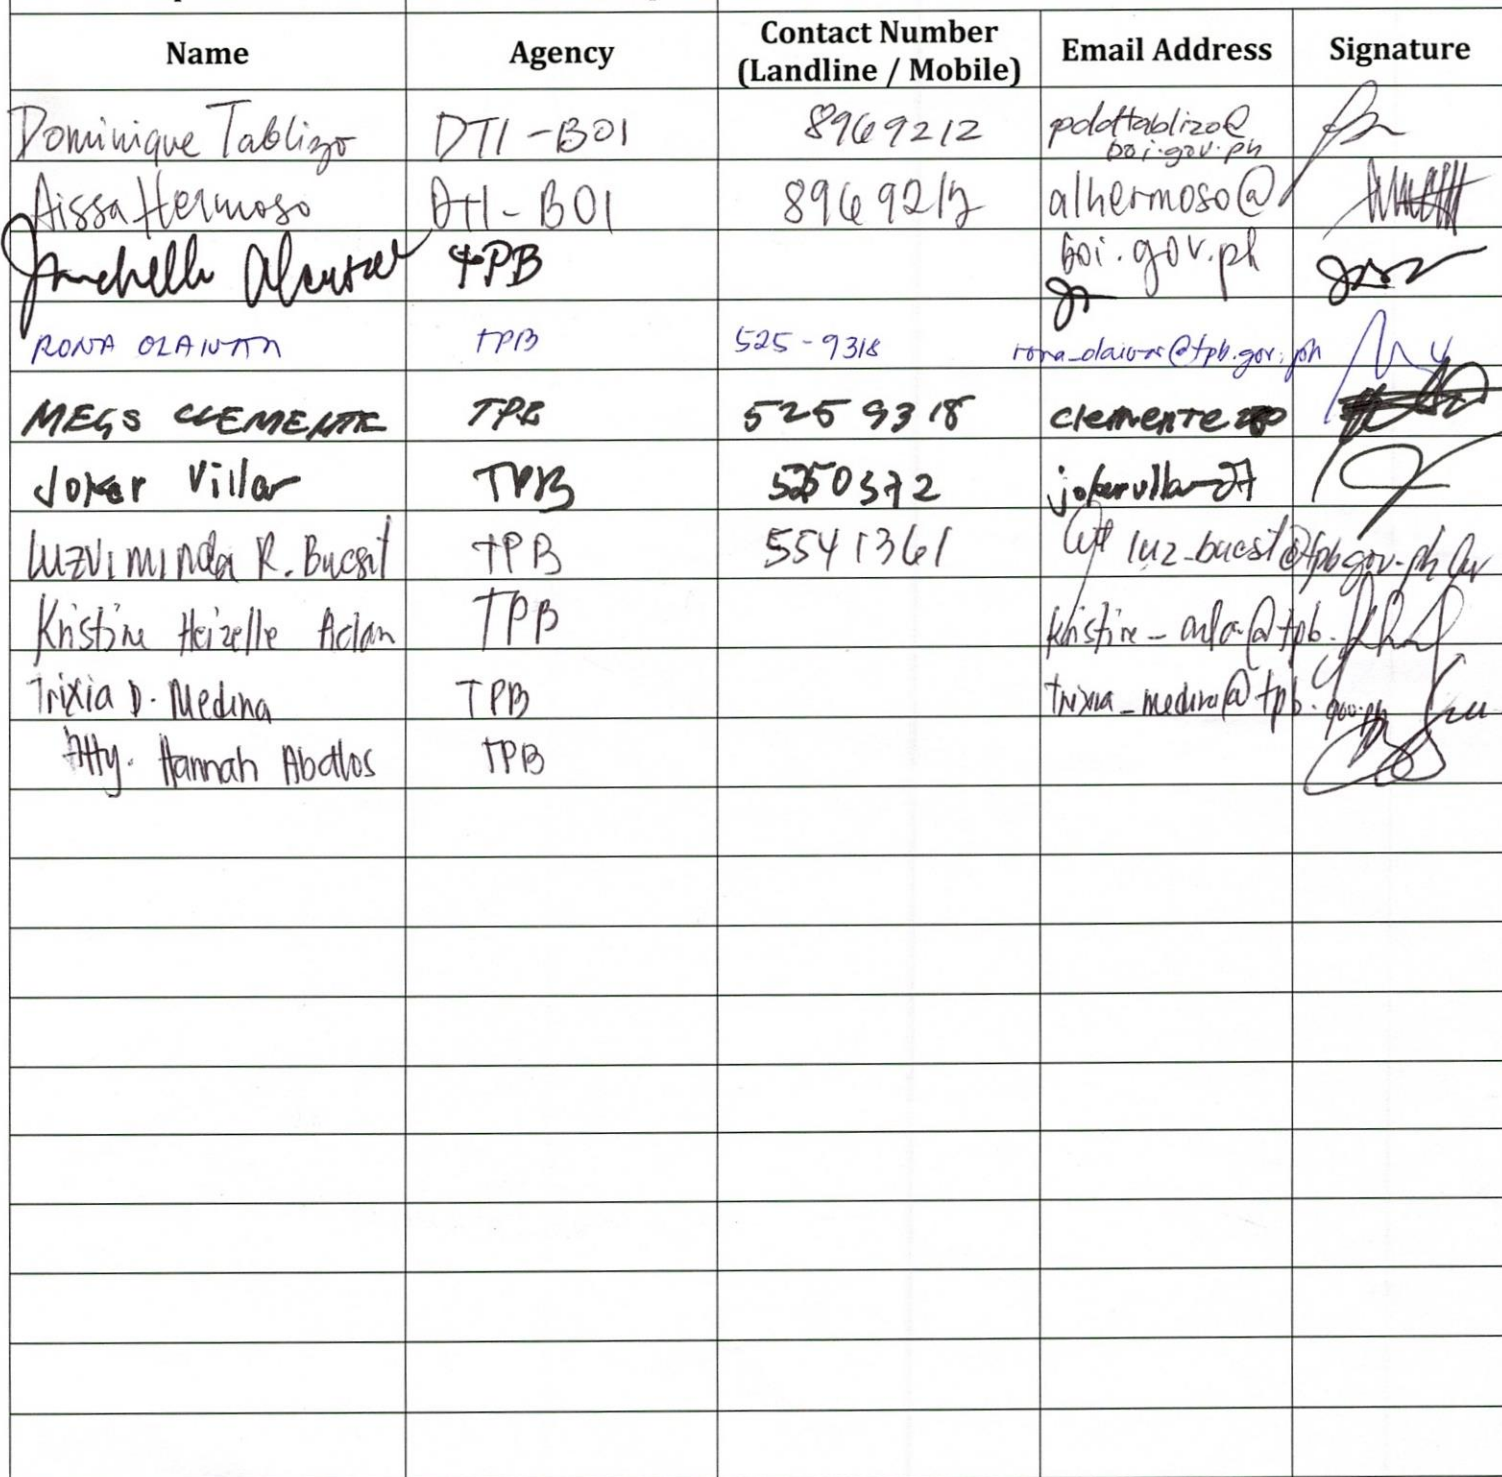 Name Agency Contact Number (Landline / Mobile) Email Address Signature
Dominique Tablizo DTI-BOI 8969212 pddttablizo@
boi.gov.ph
Aissa Hermoso DTI-BOI 8969212 alhermoso@
TPB boi.gov.ph
RONA TPB 525-9318
MEGS CLEMENTE TPB 525 9318 clemente
Joker Villar TPB 5250372
Luzviminda R. Bucsit TPB 5541361 luz_bucsit@tpb.gov.ph
Kristine Heizelle Aclan TPB
Trixia D. Medina TPB trixia_medina@tpb.gov.ph
Atty. Hannah Abalos TPB